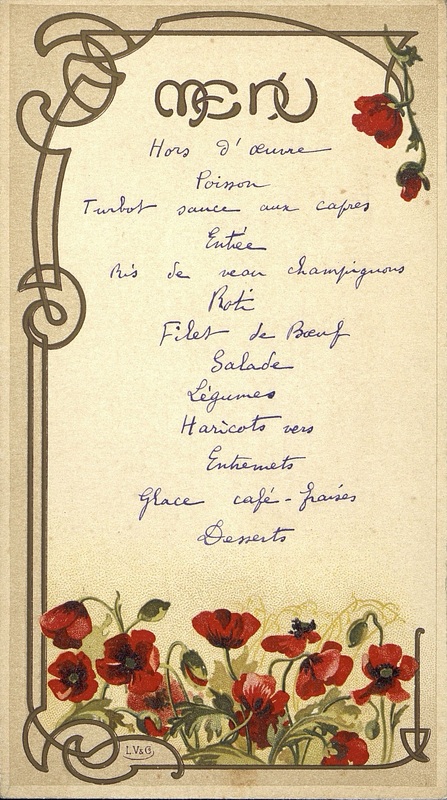 MENU
Hors d'œuvre
Poisson
Turbot sauce aux capres
Entrée
Ris de veau champignons
Roti
Filet de Bœuf
Salade
Légumes
Haricots vers
Entremets
Glace café - fraises
Desserts
L.V&C